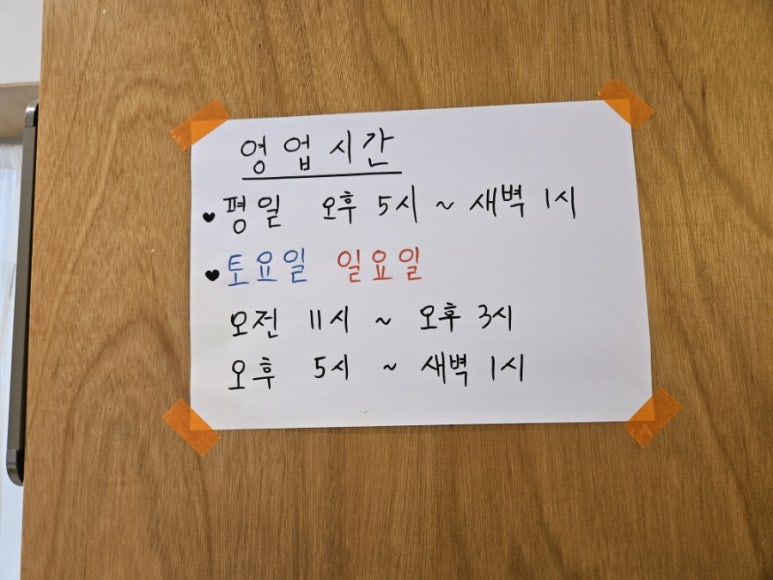 영업시간
♥평일 오후 5시 ~ 새벽 1시
♥토요일 일요일
오전 11시 ~ 오후 3시
오후 5시 ~ 새벽 1시